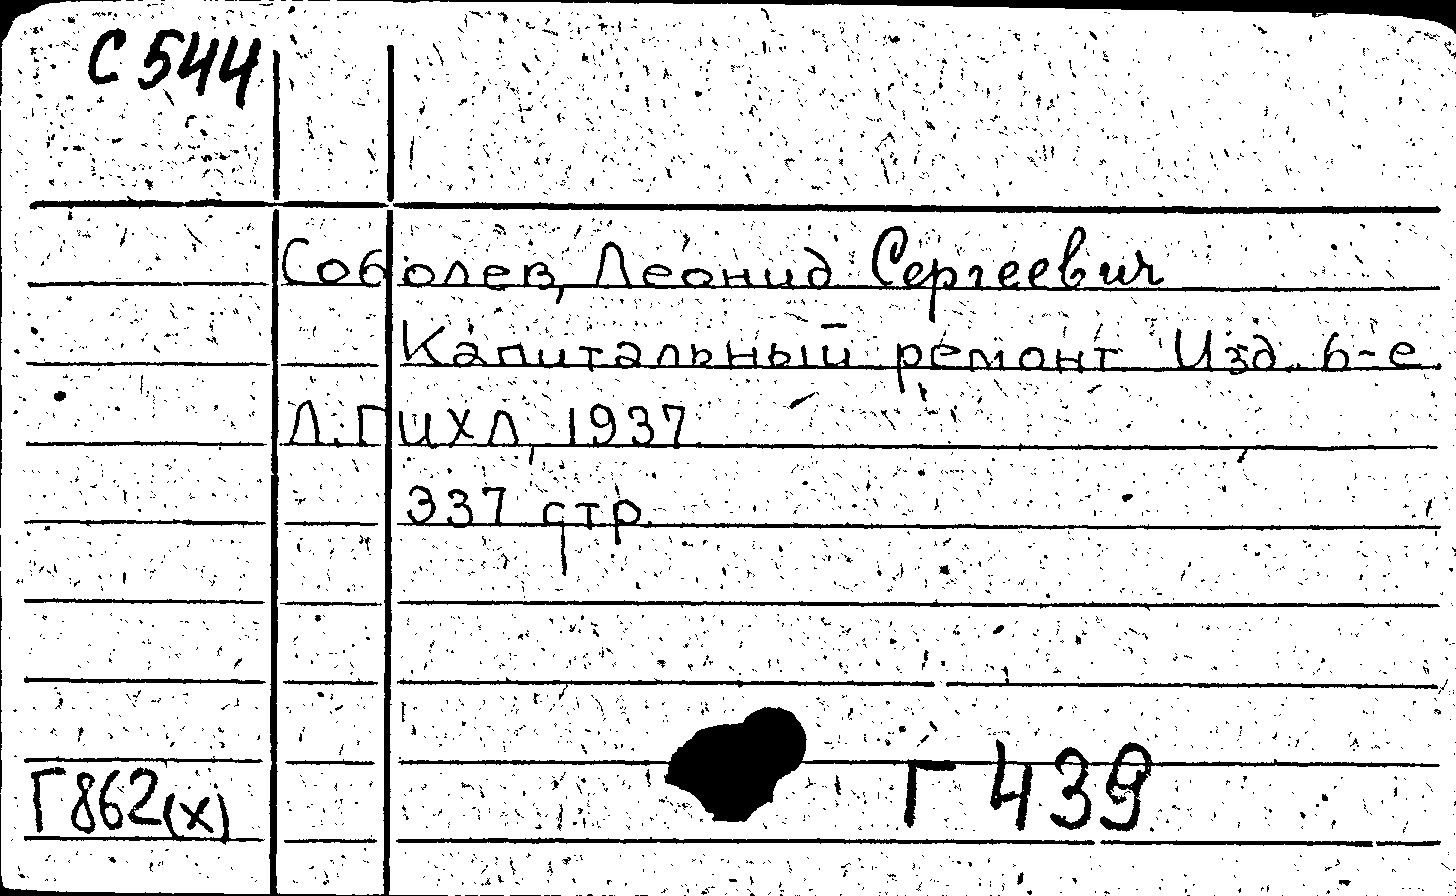 С 544
Соболев, Леонид Сергеевич
Капитальный ремонт Изд. 6-е.
Л. ГИХЛ, 1937.
337 стр.
Г 439
Г862(х)